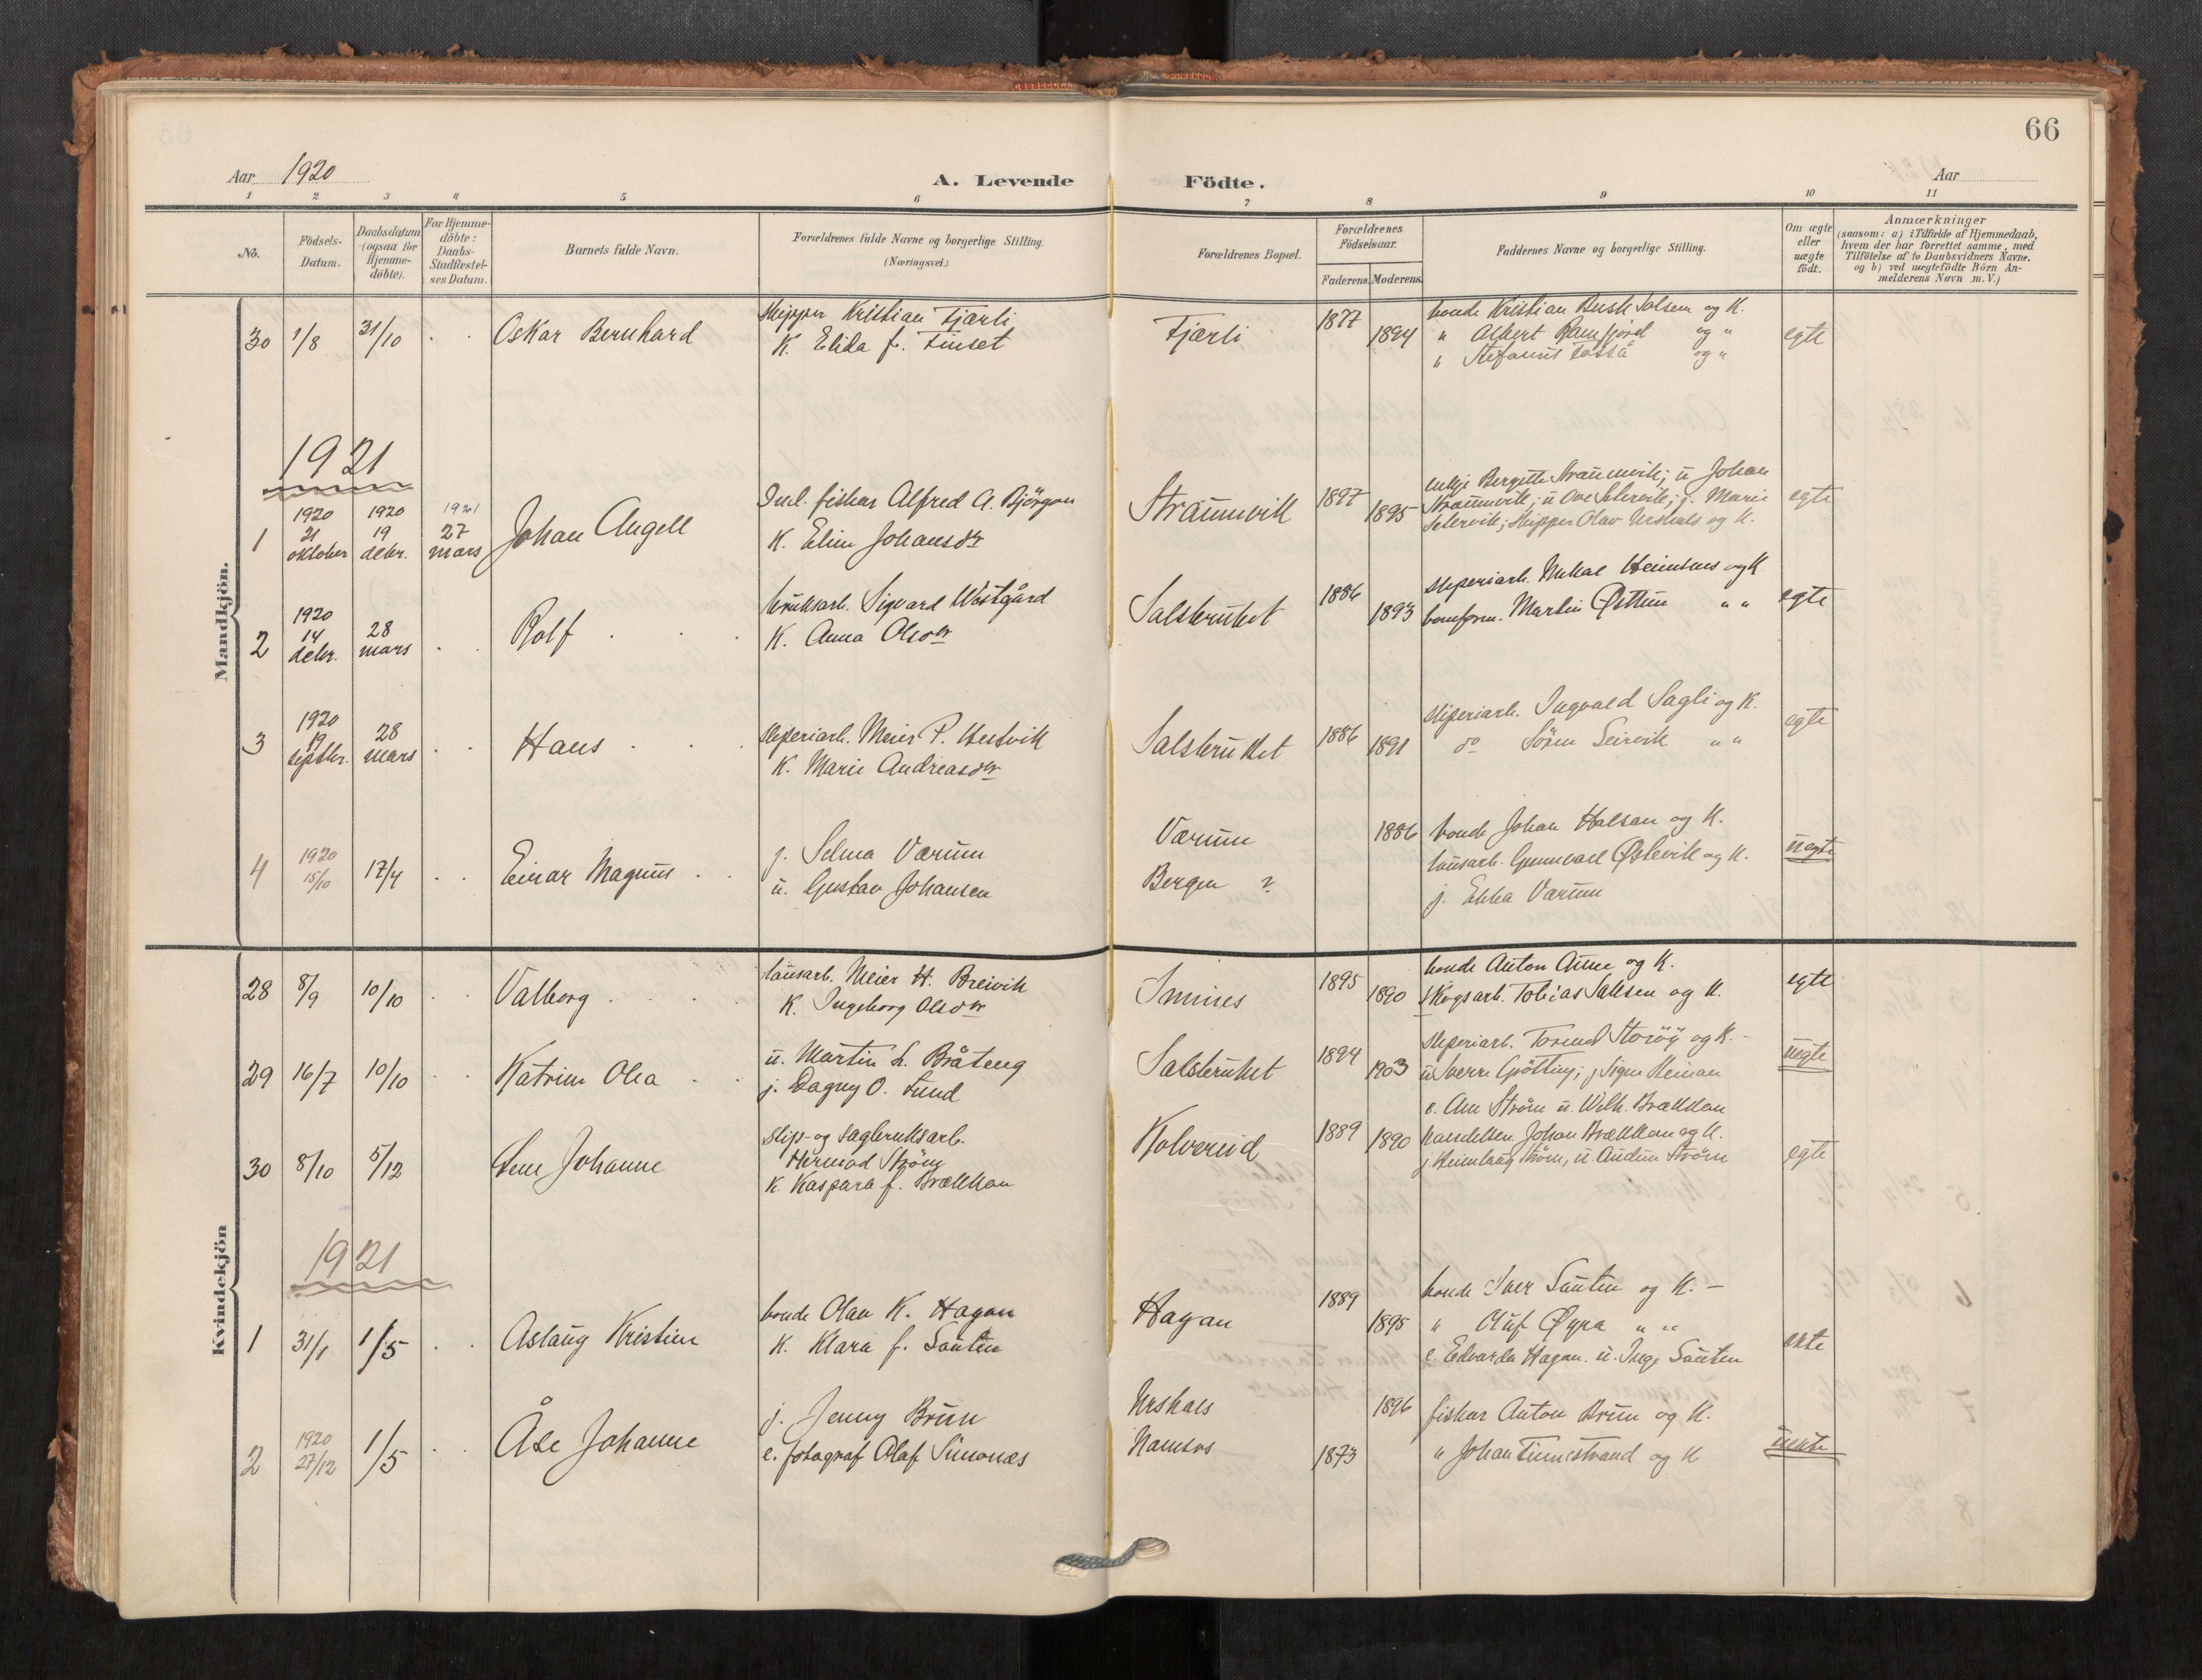 66
Aar 1920
A. Levende Födte.
Aar
1 2 3 4 5 6 7 8 9 10 11
No.
Födsels-Datum.
Daabsdatum (ogsaa for Hjemmedöbte).
For Hjemmedöbte: Daabs-Stadfæstelses Datum.
Barnets fulde Navn.
Forældrenes fulde Navne og borgerlige Stilling. (Næringsvei.)
Forældrenes Bopæl.
Forældrenes Födselsaar.
Faderens. Moderens.
Faddernes Navne og borgerlige Stilling.
Om ægte eller uægte födt.
Anmærkninger
(saasom: a) i Tilfælde af Hjemmedaab, hvem der har forrettet samme, med Tilföielse af to Daabsvidners Navne. og b) ved uægtefödte Börn Anmelderens Navn m. V.)
Mandkjön.
30 1/8 31/10 Oskar Bernhard
Skipper Kristian Fjærli
K. Elida f. Finset
Fjærli
1877 1894
bonde Kristian Salsen og K.
" Albert Ramfjord og "
" Stefanus og "
egte
1921
1 1920 21 oktober 1920 19 debr. 1921 27 mars
Johan Angell
Inl. fisker Alfred A. Bjørgan
K. Elin Johansdtr
Straumvik
1897 1895
enkje Bergitte Straumvik; u Johan
Straumvik; u Ove Selervik; j. Marie
Selervik; skipper Olav Urskals og K.
egte
2 1920 14 debr. 28 mars
Rolf
bruksarb. Sigvard Westgård
K. Anna Olsdtr
Salsbruket
1886 1893
sliperiarb. Mikal og K
Martin Østhun " "
egte
3 1920 19 septbr. 28 mars
Hans
sliperiarb. Meier P. Hestvik
K. Marie Andreasdtr
Salsbruket
1886 1891
sliperiarb. Ingvald Sagli og K.
do Søren Seirvik " "
egte
4 1920 15/10 17/4
Einar Magnus
j. Selma Værum
u. Gustav Johansen
Værum
Bergen ?
1886
bonde Johan Halsan og K.
lausarb. Gunvael Østevik og K.
j. Ebba Værum
uegte
Kvindekjön
28 8/9 10/10 Valborg
lausarb. Meier H. Breivik
K. Ingeborg Olsdtr
Smines
1895 1890
bonde Anton Aune og K.
Skogsarb. Tobias Salsen og K.
egte
29 16/7 10/10 Katrine Olea
u. Martin L. Bråteng
j. Dagny O. Lund
Salsbruket
1894 1903
sliperiarb. Storøy og K. -
u Sverre Grøtting; j Signe Heiman
uegte
30 8/10 5/12 Lene Johanne
slip- og sagbruksarb.
Hermod Strøm
K. Kaspara f. Brækkan
Kolvereid
1889 1890
e. Ane Strøm u. Wilh. Brækkan
handelsm. Johan Brækkan og K.
j. Heimlaug Strøm, u. Audun Strøm
egte
1921
1 31/1 1/5 Aslaug Kristine
bonde Olav K. Hagan
K. Klara f. Sauten
Hagan
1889 1895
bonde Iver Sauten og K. -
" Oluf Øyra " "
e. Edvarda Hagan. u. Inge Sauten
ekte
2 1920 27/12 1/5 Åse Johanne
j. Jenny Brun
e. fotograf Olaf Simonæs
Urskals
Namsos
1896
1873
fisker Anton Brun og K.
" Johan Finnestrand og K
uekte